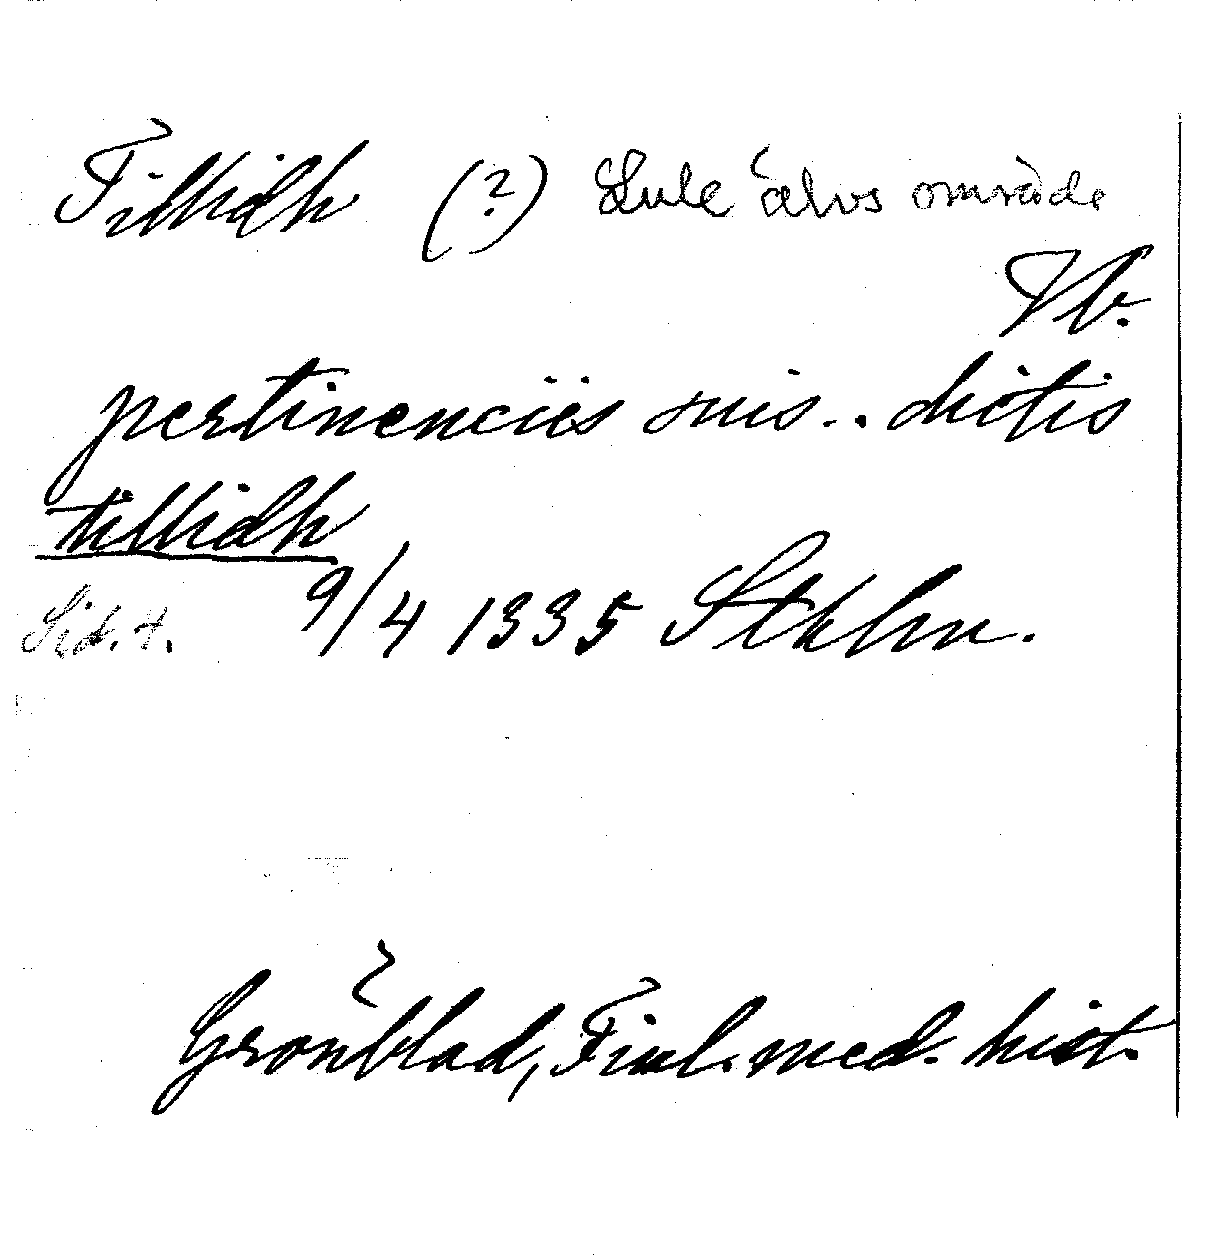 Tillidh (?) Lule älvs område
Vb.
pertinenciis suis .. dictis
tillidh
Sid. 4. 9/4 1335 Sthlm.
Grönblad, Finl. med. hist.